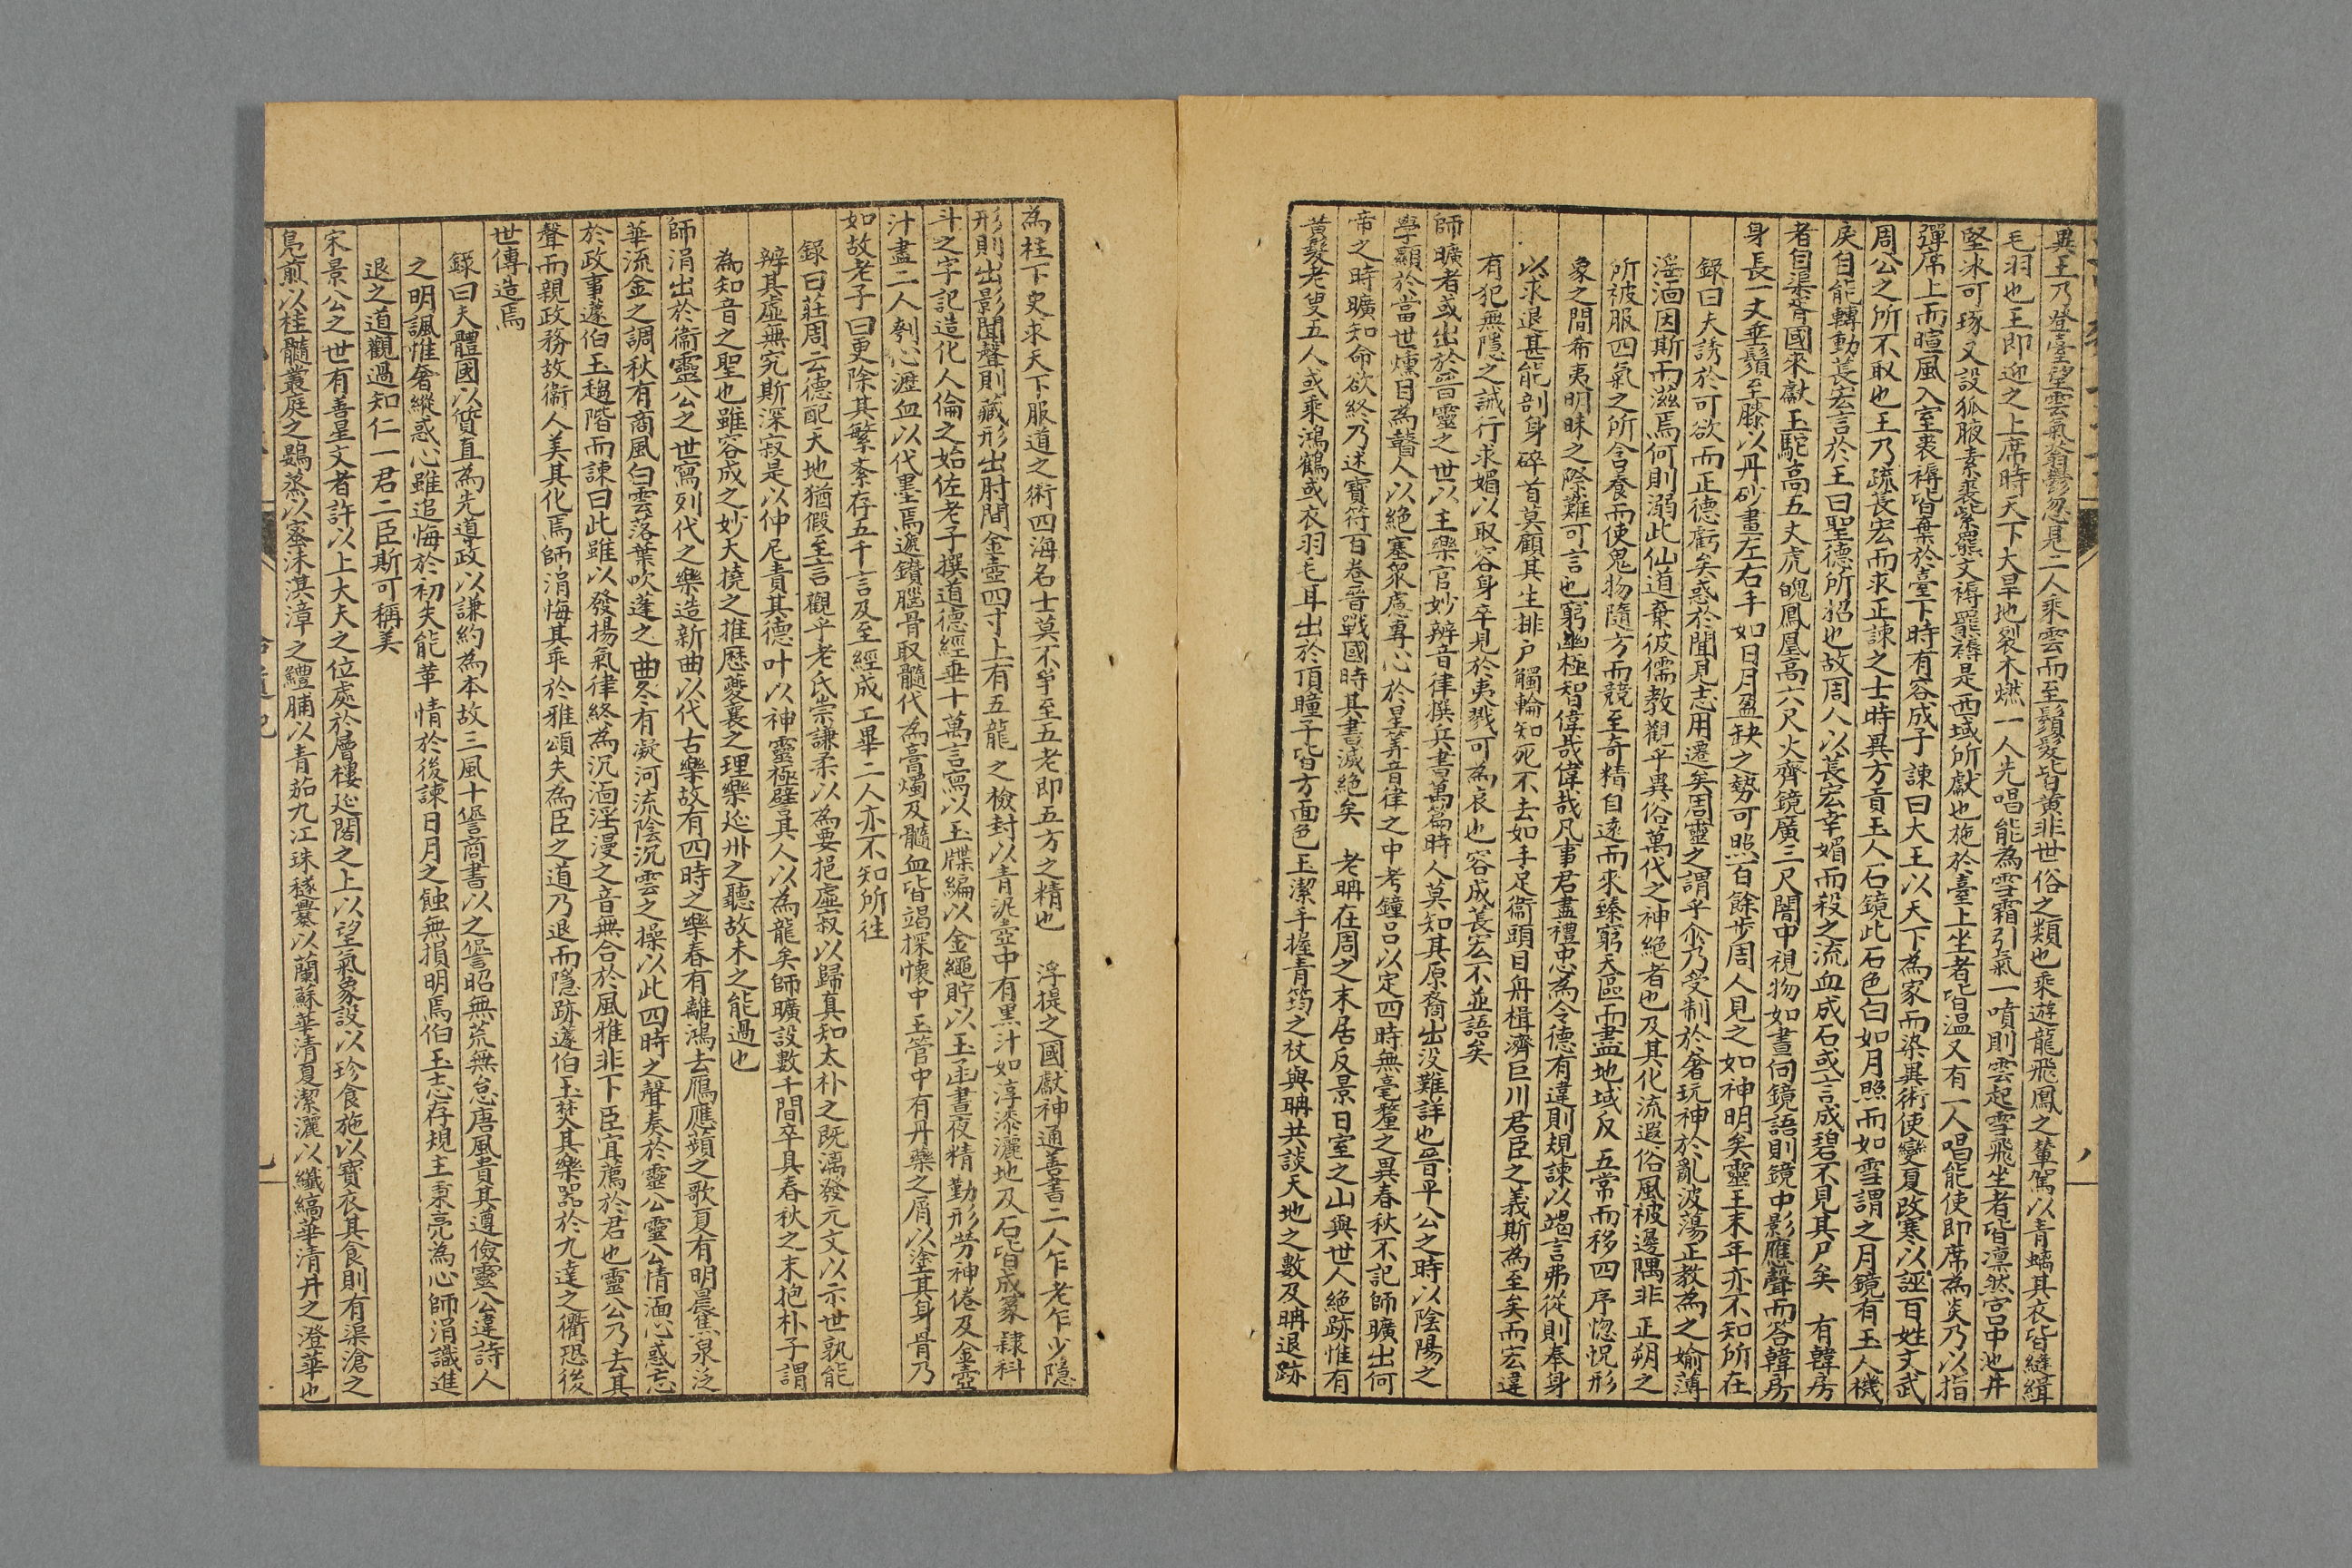 異王乃登臺望雲氣蓊鬱忽見二人乘雲而至鬚髮皆黄非世俗之類也乘遊龍飛鳳之輦駕以青螭其衣皆縫緝
毛羽也王即迎之上席時天下大旱地裂木燃一人先唱能為雪霜引氣一噴則雲起雪飛坐者皆凛然宫中池井
堅冰可琢又設狐腋素裘紫羆文褥羆褥是西域所獻也施於臺上坐者皆温又有一人唱能使即席為炎乃以指
彈席上而暄風入室裘褥皆棄於臺下時有容成子諫曰大王以天下為家而染異術使變夏改寒以誣百姓文武
周公之所不取也王乃疏萇宏而求正諫之士時異方貢玉人石鏡此石色白如月照而如雪謂之月鏡有玉人機
戾自能轉動萇宏言於王曰聖德所招也故周人以萇宏幸媚而殺之流血成石或言成碧不見其尸矣　有韓房
者自渠胥國來獻玉駝高五丈虎魄鳳凰高六尺火齊鏡廣三尺闇中視物如晝向鏡語則鏡中影應聲而答韓房
身長一丈垂鬚至膝以丹砂畫左右手如日月盈缺之勢可照百餘步周人見之如神明矣靈王末年亦不知所在
録曰夫誘於可欲而正德虧矣惑於聞見志用遷矣周靈之謂乎尒乃受制於奢玩神於亂波蕩正教為之媮薄
淫湎因斯而滋焉何則溺此仙道棄彼儒教觀乎異俗萬代之神絶者也及其化流遐俗風被邊隅非正朔之
所被服四氣之所含養而使鬼物隨方而競至奇精自遠而來臻窮天區而盡地域反五常而移四序惚怳形
象之間希夷明昧之際難可言也窮幽極智偉哉偉哉凡事君盡禮忠為令德有違則規諫以竭言弗從則奉身
以求退甚能剖身碎首莫顧其生排户觸輪知死不去如手足衛頭目舟楫濟巨川君臣之義斯為至矣而宏違
有犯無隱之誡行求媚以取容身卒見於夷戮可為哀也容成萇宏不並語矣
師曠者或出於晉靈之世以主樂官妙辨音律撰兵書萬篇時人莫知其原裔出没難詳也晉平公之時以陰陽之
學顯於當世燻目為瞽人以絶塞衆慮專心於星筭音律之中考鐘吕以定四時無毫釐之異春秋不記師曠出何
帝之時曠知命欲終乃述寶符百卷晉戰國時其書滅絶矣　老聃在周之末居反景日室之山與世人絶跡惟有
黄髮老叟五人或乘鴻鶴或衣羽毛耳出於頂瞳子皆方面色玉潔手握青筠之杖與聃共談天地之數及聃退跡
為柱下史求天下服道之術四海名士莫不爭至五老即五方之精也　浮提之國獻神通善書二人乍老乍少隱
形則出影聞聲則藏形出肘間金壺四寸上有五龍之檢封以青泥壺中有黒汁如淳漆灑地及石皆成篆隸科
斗之字記造化人倫之始佐老子撰道德經垂十萬言寫以玉牒編以金繩貯以玉函晝夜精勤形勞神倦及金壺
汁盡二人刳心瀝血以代墨焉遞鑽腦骨取髓代為膏燭及髓血皆竭探懷中玉管中有丹藥之屑以塗其身骨乃
如故老子曰更除其繁紊存五千言及至經成工畢二人亦不知所往
録曰莊周云德配天地猶假至言觀乎老氏崇謙柔以為要挹虚寂以歸真知太朴之既漓發元文以示世孰能
辨其虚無究斯深寂是以仲尼責其德叶以神靈極譬其人以為龍矣師曠設數千間卒具春秋之末抱朴子謂
為知音之聖也雖容成之妙大撓之推歴夔襄之理樂延州之聽故未之能過也
師涓出於衛靈公之世寫列代之樂造新曲以代古樂故有四時之樂春有離鴻去鴈應蘋之歌夏有明晨焦泉泛
華流金之調秋有商風白雲落葉吹蓬之曲冬有凝河流陰沉雲之操以此四時之聲奏於靈公靈公情湎心惑忘
於政事蘧伯玉趨階而諫曰此雖以發揚氣律終為沉湎淫漫之音無合於風雅非下臣宜薦於君也靈公乃去其
聲而親政務故衛人美其化焉師涓悔其乖於雅頌失為臣之道乃退而隱跡蘧伯玉焚其樂器於九逵之衢恐後
世傳造焉
録曰夫體國以質直為先導政以謙約為本故三風十愆商書以之愆昭無荒無怠唐風貴其遵儉靈公違詩人
之明諷惟奢縱惑心雖追悔於初失能革情於後諫日月之蝕無損明焉伯玉志存規主秉亮為心師涓識進
退之道觀過知仁一君二臣斯可稱美
宋景公之世有善星文者許以上大夫之位處於層樓延閣之上以望氣象設以珍食施以寶衣其食則有渠滄之
鳧煎以桂髓叢庭之鷃蒸以蜜沬淇漳之鱧脯以青茄九江珠穟爨以蘭蘇華清夏潔灑以纖縞華清井之澄華也